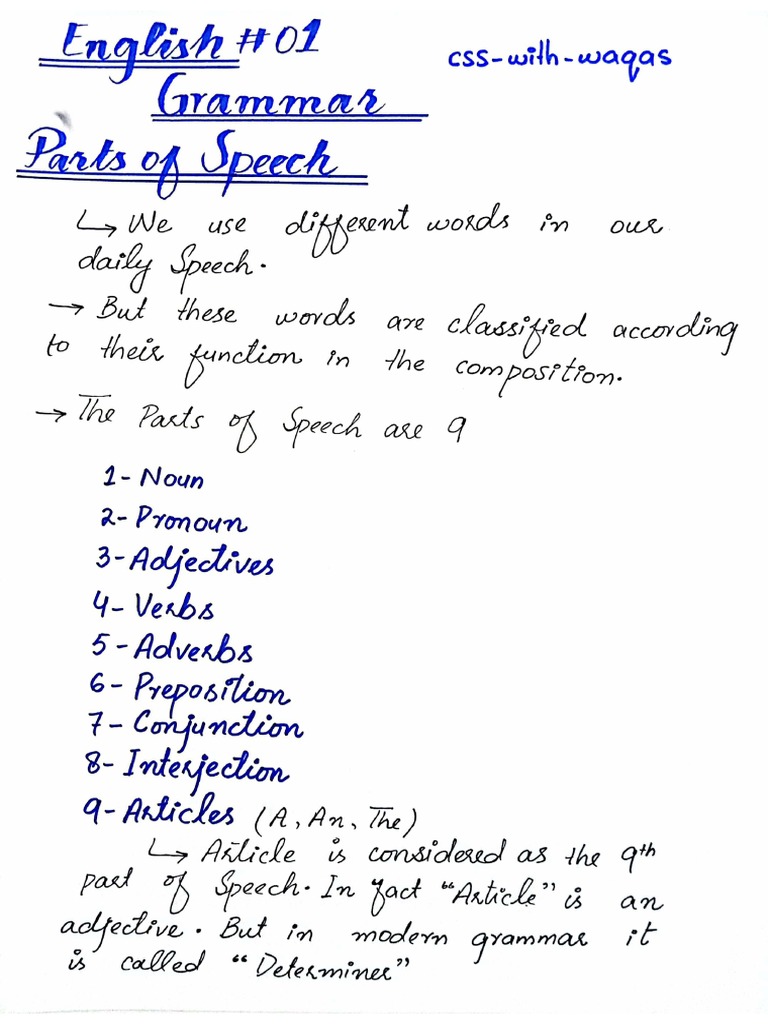 English #01
css-with-waqas
Grammar
Parts of Speech
↳ We use different words in our
daily Speech.
→ But these words are classified according
to their function in the composition.
→ The Parts of Speech are 9
1- Noun
2- Pronoun
3- Adjectives
4- Verbs
5- Adverbs
6- Preposition
7- Conjunction
8- Interjection
9- Articles (A, An, The)
↳ Article is considered as the 9th
part of Speech. In fact "Article" is an
adjective. But in modern grammar it
is called "Determiner"